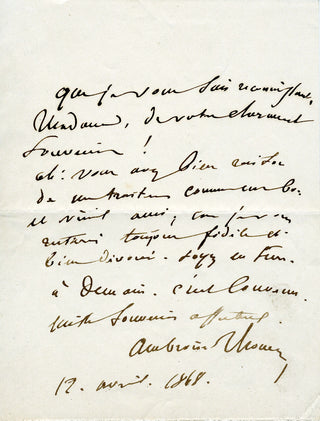 que je vous suis reconnaissant,
Madame, de votre charmant
souvenir !
ah ! vous avez bien raison
de me traiter comme un
vieil ami, car je vous
toujours fidèle et
bien dévoué. Soyez en
à demain. c'est convenu.
mille souvenirs affectueux.
Ambroise Thomas
12. avril. 1868.